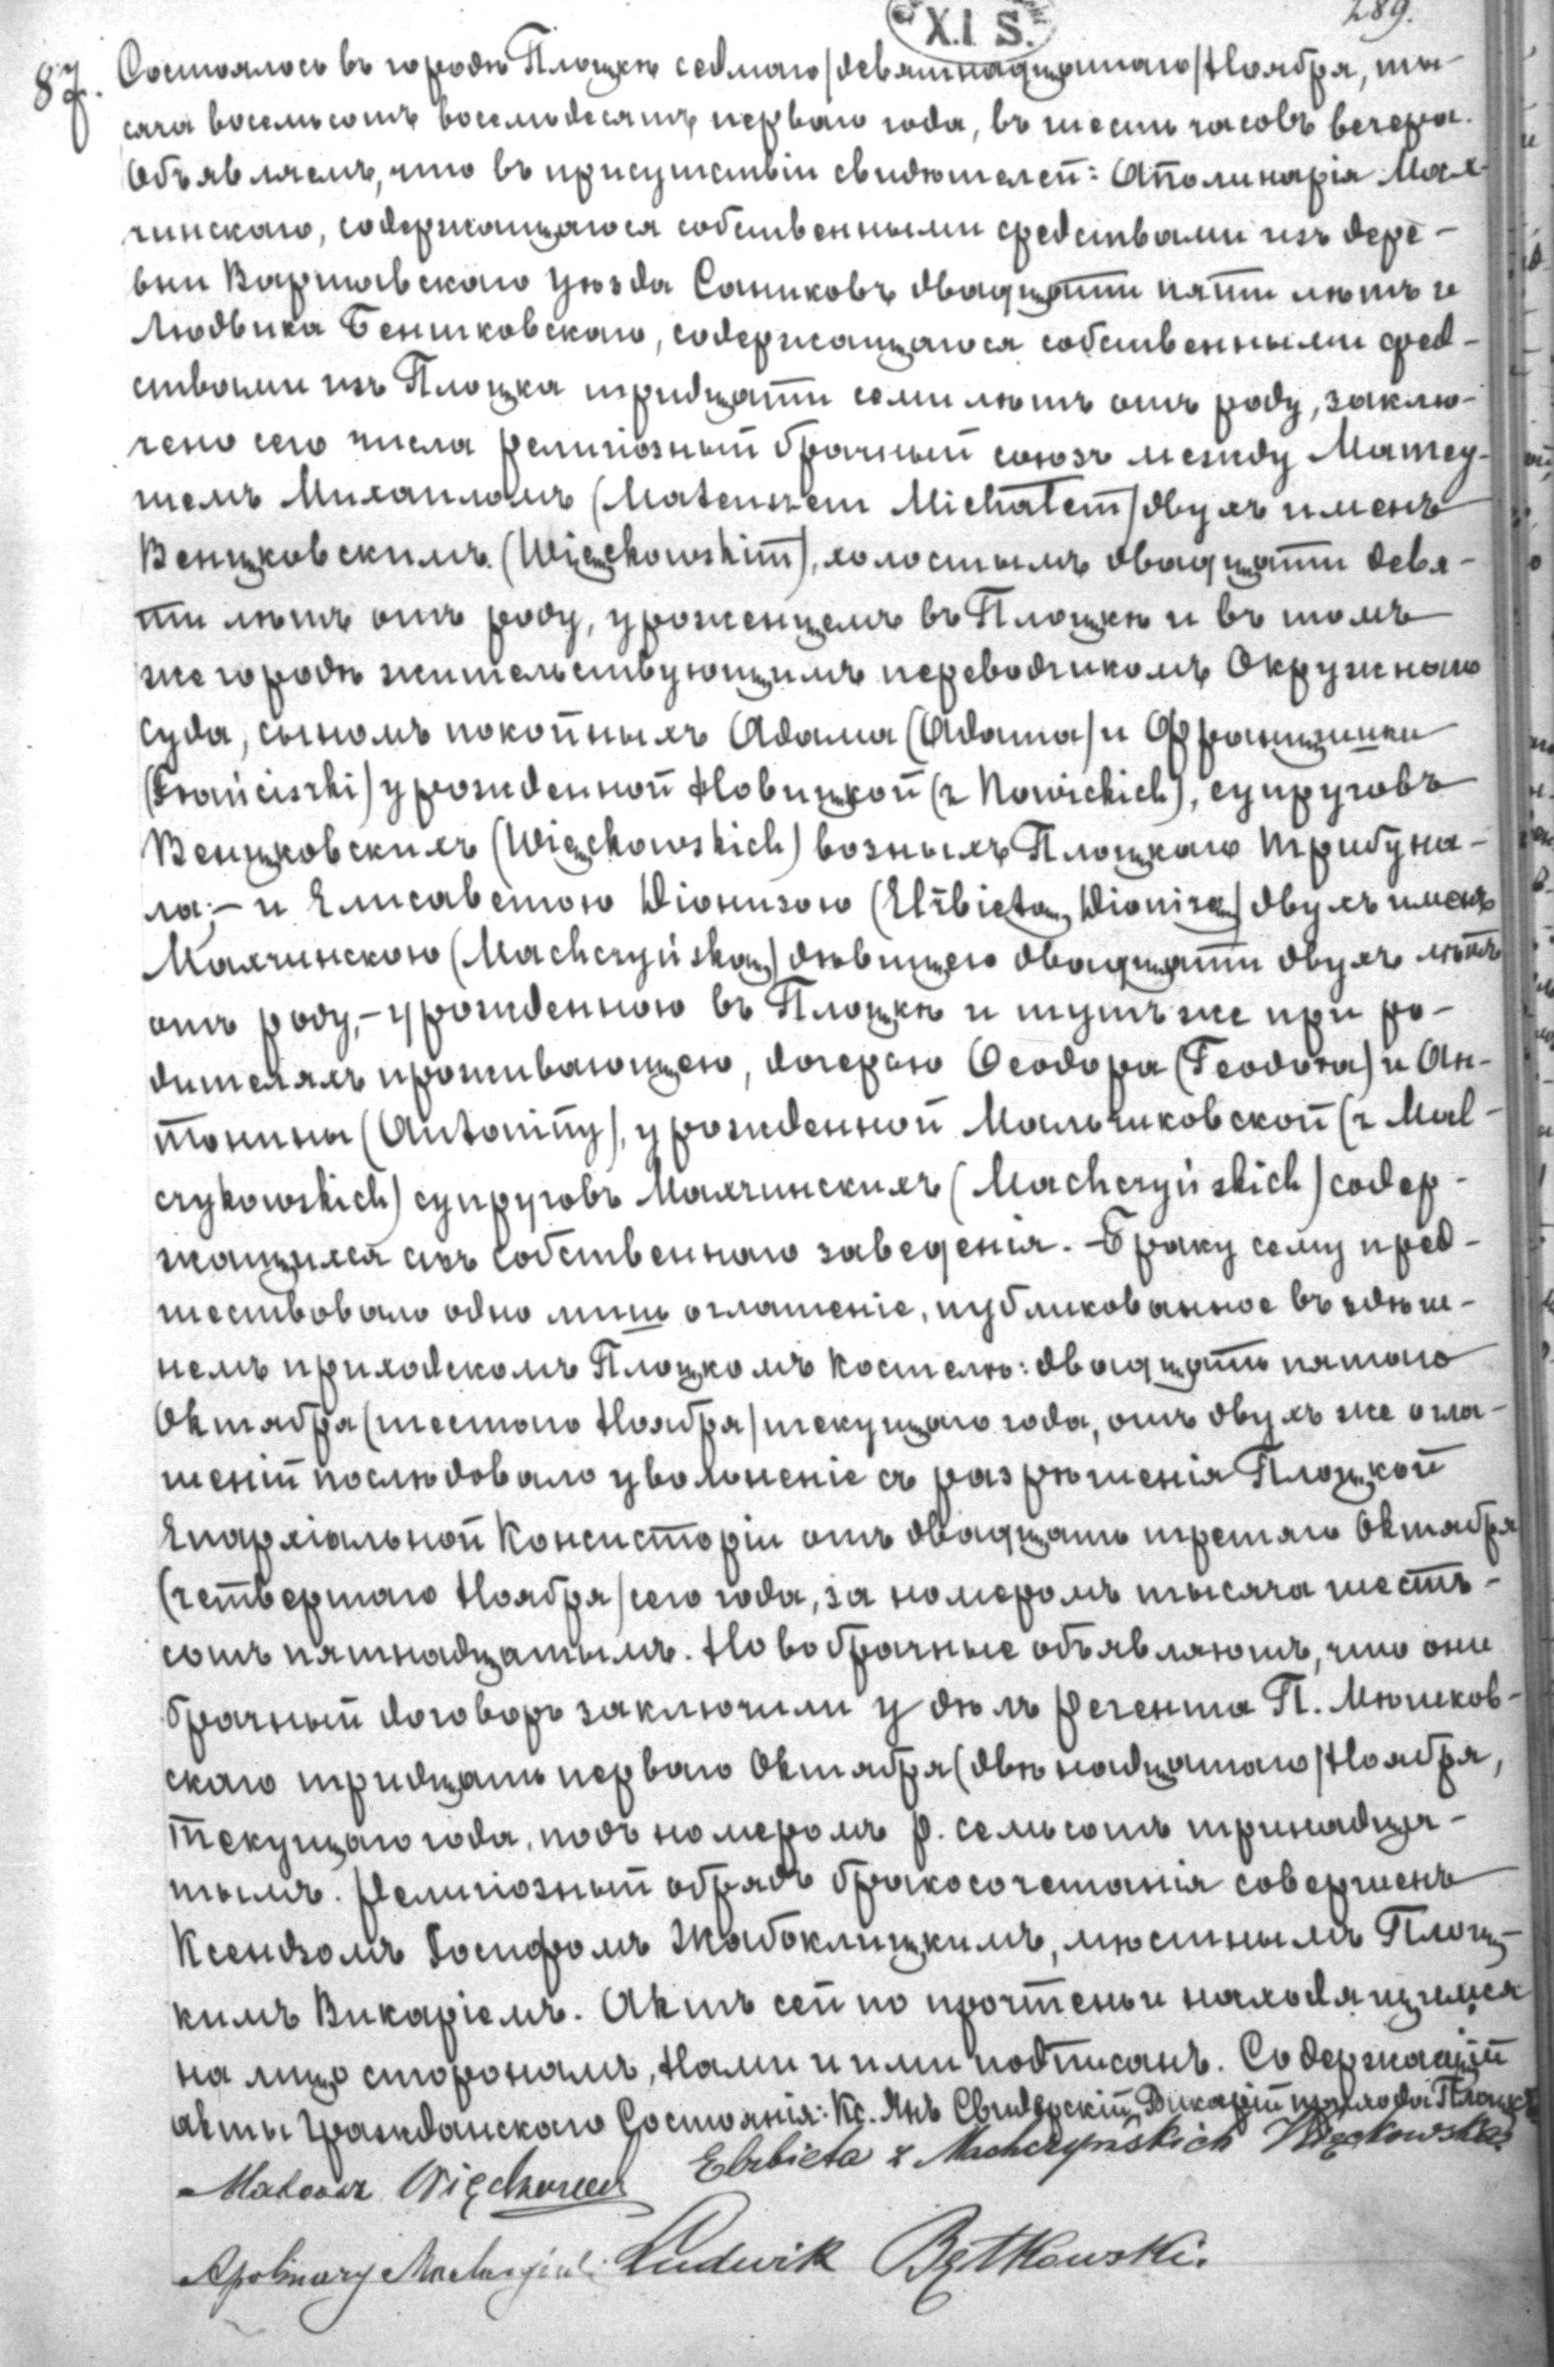 X.I S.
289.
87. Состоялось въ городѣ Плоцкѣ седмаго/девятнадцатаго/Ноября, ты-
сяча восемьсотъ восемьдесятъ перваго года, въ шесть часовъ вечера.
Объявляемъ, что въ присутствіи свидѣтелей: Аполинарія Мах-
чинскаго, содержащагося собственными средствами изъ дере-
вни Варшавскаго уѣзда Саниковъ двадцати пяти лѣтъ и
Людвика Бентковскаго, содержащагося собственными сред-
ствами изъ Плоцка тридцати семи лѣтъ отъ роду, заклю-
чено сего числа религіозный брачный союзъ между Матеу-
шемъ Михаиломъ (Mateuszem Michałem) двухъ именъ
Венцковскимъ (Więckowskim), холостымъ двадцати девя-
ти лѣтъ отъ роду, уроженцемъ въ Плоцкѣ и въ томъ
же городѣ жительствующимъ переводчикомъ Окружнаго
Суда, сыномъ покойныхъ Адама (Adama) и Францишки
(Franciszki) урожденной Новицкой (z Nowickich), супруговъ
Венцковскихъ (Więckowskich) возныхъ Плоцкаго Трибуна-
ла; – и Елисаветою Діонизою (Elżbietą Dionizą) двухъ именъ
Махчинскою (Machczyńską) дѣвицею двадцати двухъ лѣтъ
отъ роду, – урожденною въ Плоцкѣ и тутъ же при ро-
дителяхъ проживающею, дочерью Ѳеодора (Teodora) и Ан-
тонины (Antoniny), урожденной Мальчиковской (z Mal-
czykowskich) супруговъ Махчинскихъ (Machczyńskich) содер-
жащихся изъ собственнаго заведенія. – Браку сему пред-
шествовало одно лишь оглашеніе, публикованное въ здѣш-
немъ приходскомъ Плоцкомъ костелѣ: двадцать пятаго
Октября (шестого Ноября) текущаго года, отъ двухъ же огла-
шеній послѣдовало увольненіе съ разрѣшенія Плоцкой
Епархіальной Консисторіи отъ двадцать третяго Октября
(четвертаго Ноября) сего года, за номеромъ тысяча шесть-
сотъ пятнадцатымъ. Новобрачные объявляютъ, что они
брачный договоръ заключили у дѣлъ Регента П. Мюшков-
скаго тридцать перваго Октября (двѣнадцатаго) Ноября,
текущаго года, подъ номеромъ р. семьсотъ тринадця-
тымъ. Религіозный обрядъ бракосочетанія совершенъ
Ксендзомъ Іосифомъ Жабоклицкимъ, мѣстнымъ Плоц-
кимъ Викаріемъ. Актъ сей по прочтеньи находящимся
на лицо сторонамъ, Нами и ими подписанъ. Содержащій
акты Гражданскаго Состоянія: Кс. Янъ Свидерскій Викарій прихода Плоцкъ
Mateusz Więckowski Elżbieta z Machczyńskich Więckowska
Apolinary Machczyński Ludwik Bętkowski.